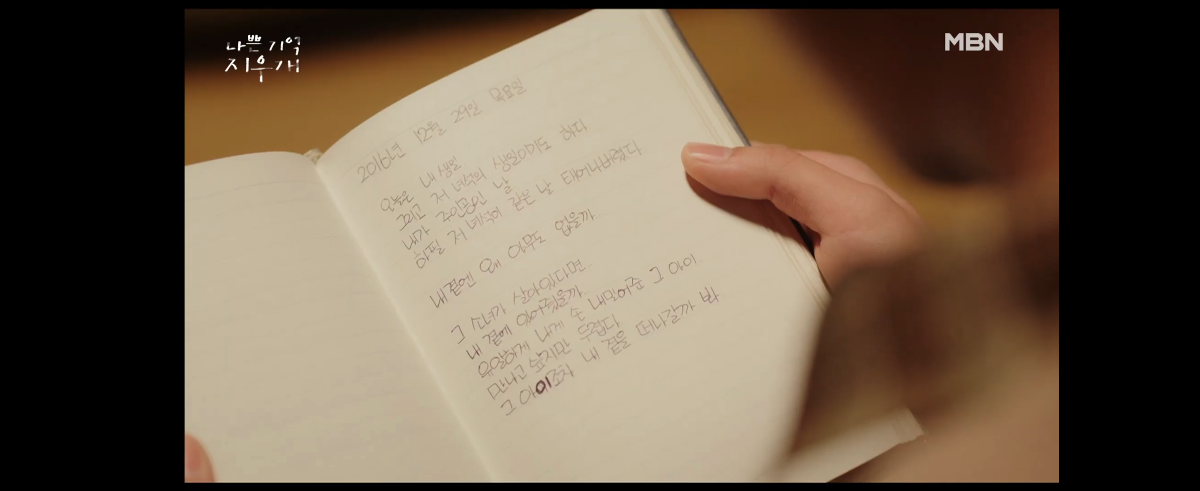 나쁜 기억
지우개
MBN
2016년 12월 29일 목요일
오늘은 내 생일
그리고 저 녀석의 생일이기도 하다
내가 주인공인 날
하필 저 녀석이 같은 날 태어나버렸다.
내 곁엔 왜 아무도 없을까
그 소녀가 살아있다면..
내 곁에 있어줬을까
유일하게 나에게 손 내밀어준 그 아이.
만나고 싶지만 두렵다
그 아이조차 내 곁을 떠나갈까 봐